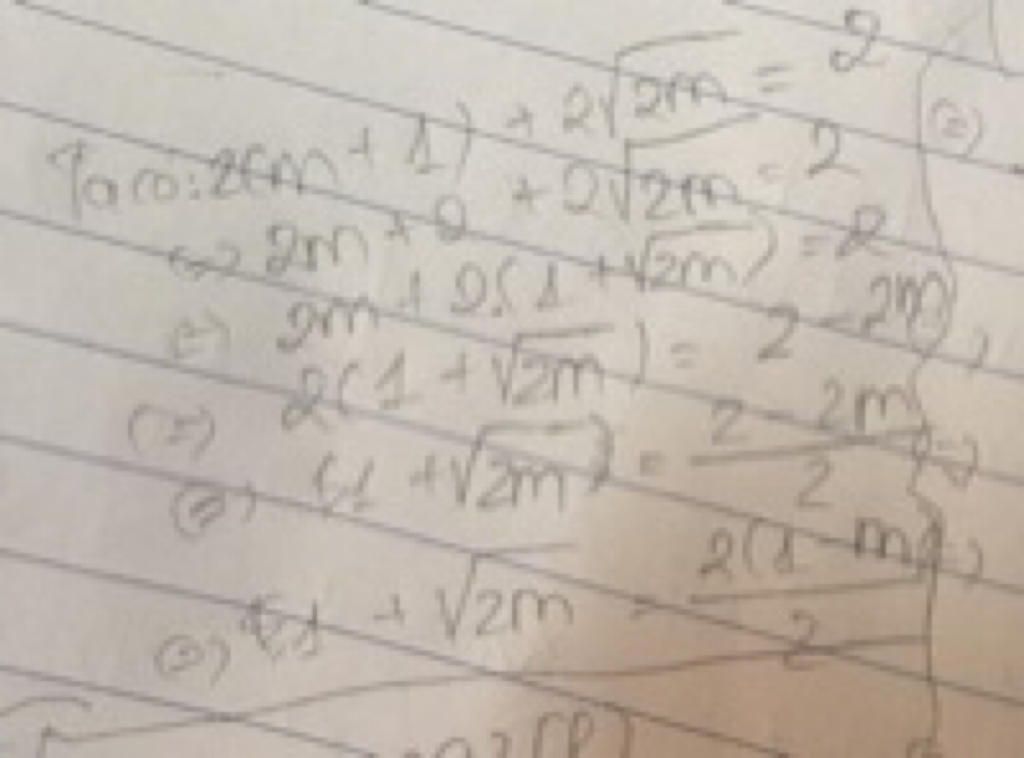 Ta có: 2(m + 1) + 2√2m = 2
⇔ 2m + 2 + 2√2m = 2
⇔ 2m + 2(1 + √2m) = 2
⇔ 2(1 + √2m) = 2 - 2m
⇔ (1 + √2m) = (2 - 2m)/2
⇔ 1 + √2m = 2(1 - m)/2